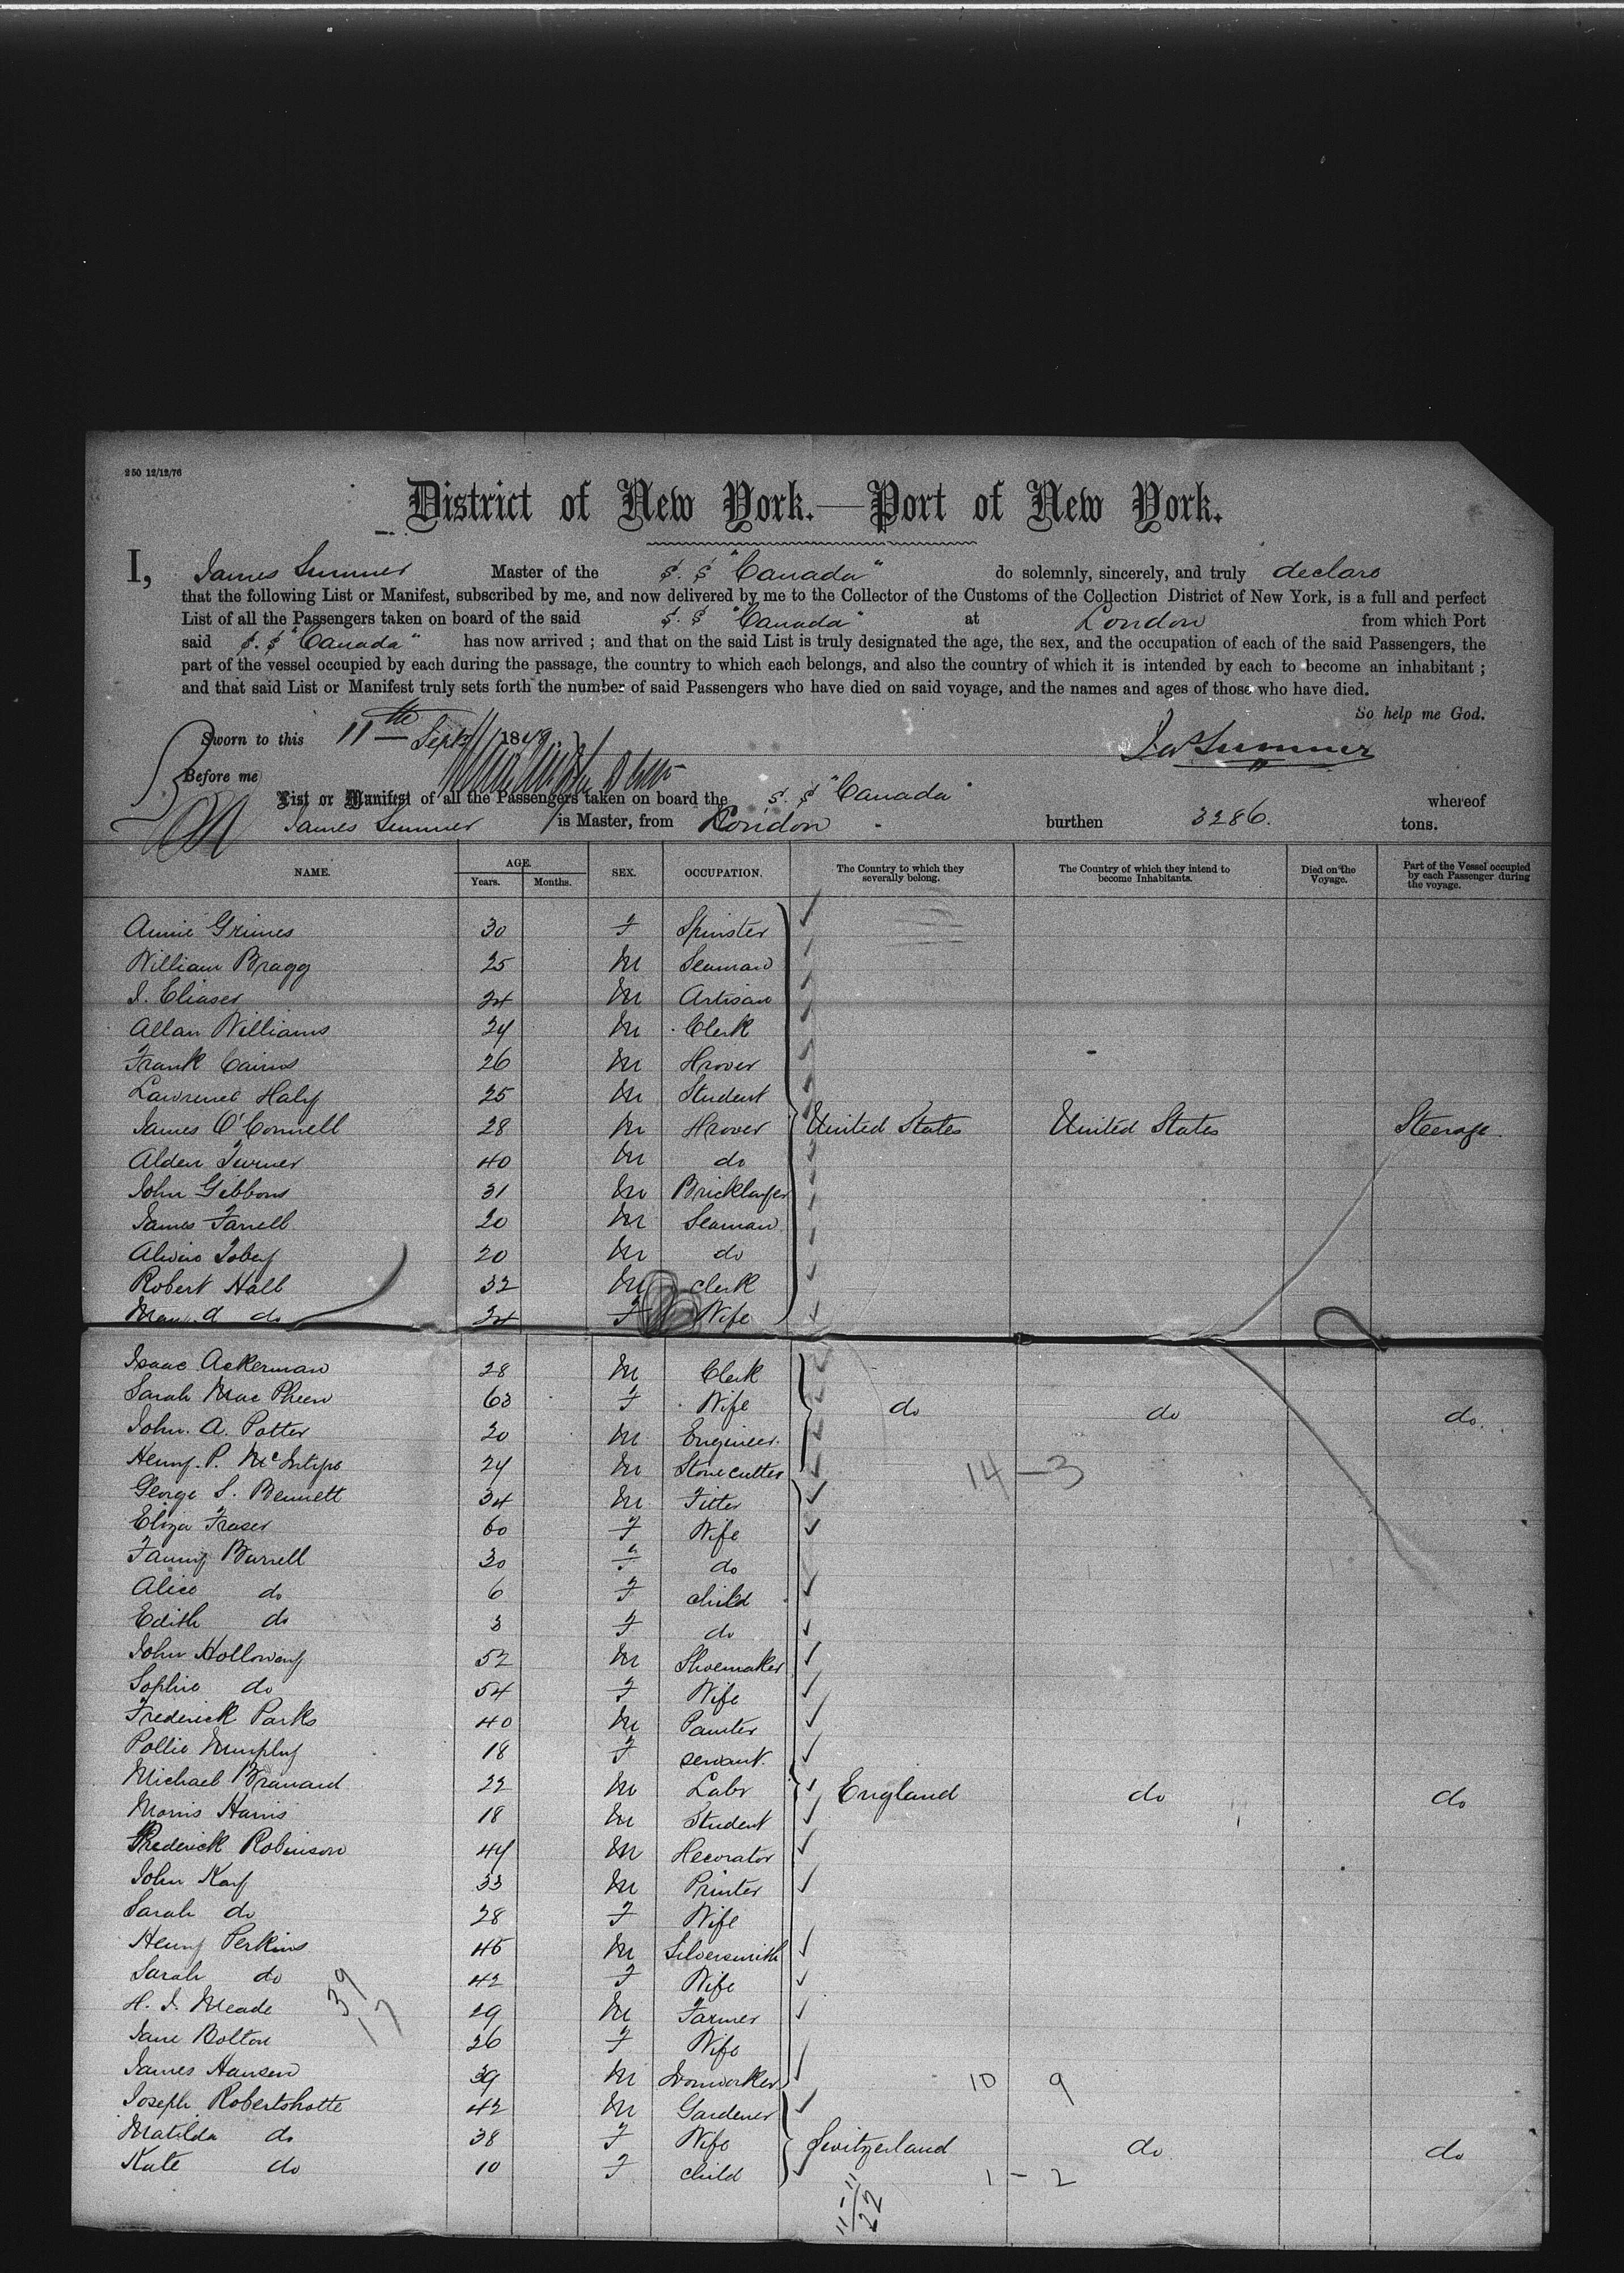 250 12/12/76
District of New York.—Port of New York.
I, James Sumner Master of the S. S "Canada" do solemnly, sincerely, and truly declare
that the following List or Manifest, subscribed by me, and now delivered by me to the Collector of the Customs of the Collection District of New York, is a full and perfect
List of all the Passengers taken on board of the said S. S "Canada" at London from which Port
said S. S "Canada" has now arrived ; and that on the said List is truly designated the age, the sex, and the occupation of each of the said Passengers, the
part of the vessel occupied by each during the passage, the country to which each belongs, and also the country of which it is intended by each to become an inhabitant ;
and that said List or Manifest truly sets forth the number of said Passengers who have died on said voyage, and the names and ages of those who have died.
So help me God.
Sworn to this 11th Sept 18
Jas Sumner
Before me
List or Manifest of all the Passengers taken on board the S. S "Canada" whereof
James Sumner is Master, from London burthen 3286. tons.
NAME. AGE. Years. Months. SEX. OCCUPATION. The Country to which they severally belong. The Country of which they intend to become Inhabitants. Died on the Voyage. Part of the Vessel occupied by each Passenger during the voyage.
Annie Grimes 30 F Spinster
William Bragg 25 M Seaman
I. Eliaser 24 M Artisan
Allan Williams 24 M Clerk
Frank Cairns 26 M Drover
Lawrence Haly 25 M Student
James O'Connell 28 M Drover United States United States Steerage
Alden Turner 40 M do
John Gibbons 31 M Bricklayer
James Farrell 20 M Seaman
Alvin Tobey 20 M do
Robert Hall 32 M Clerk
Mary. A do 24 F Wife
Isaac Ackerman 28 M Clerk
Sarah Mac Pheen 63 F Wife do do do.
John. A. Potter 20 M Engineer.
Henry. P. McIntyre 24 M Stonecutter 14 - 3
George S. Bennett 34 M Fitter
Eliza Fraser 60 F Wife
Fanny Burrell 30 F do
Alice do 6 F child
Edith do 3 F do
John Holloway 52 M Shoemaker
Sophie do 54 F Wife
Frederick Parks 40 M Painter
Pollie Murphy 18 F servant.
Michael Brannard 22 M Labr England do do
Morris Harris 18 M Student
Frederick Robinson 44 M Decorator
John Kay 33 M Printer
Sarah do 28 F Wife
Henry Perkins 45 M Silversmith
Sarah do 42 F Wife
39
H. J. Meade 29 M Farmer
17
Jane Bolton 26 F Wife
James Hansen 39 M Ironworker 10 9
Joseph Robertshotte 42 M Gardener
Matilda do 38 F Wife Switzerland do do
Kate do 10 F child 1 - 2
11-11
22